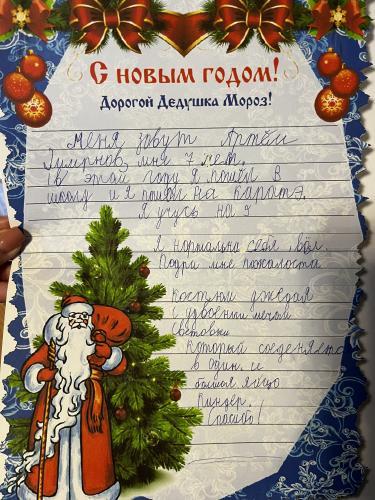 С новым годом!
Дорогой Дедушка Мороз!
Меня зовут Артём
мне 7 лет.
в этом году я пошёл в
школу и я пошёл на каратэ.
Я учусь на
Я нормально себя вёл.
Подри мне пожалоста
Костюм джедая
с двоеным мечом
световым
Который соеденяется
в один. и
большая яйцо
Киндер.
Спасибо!